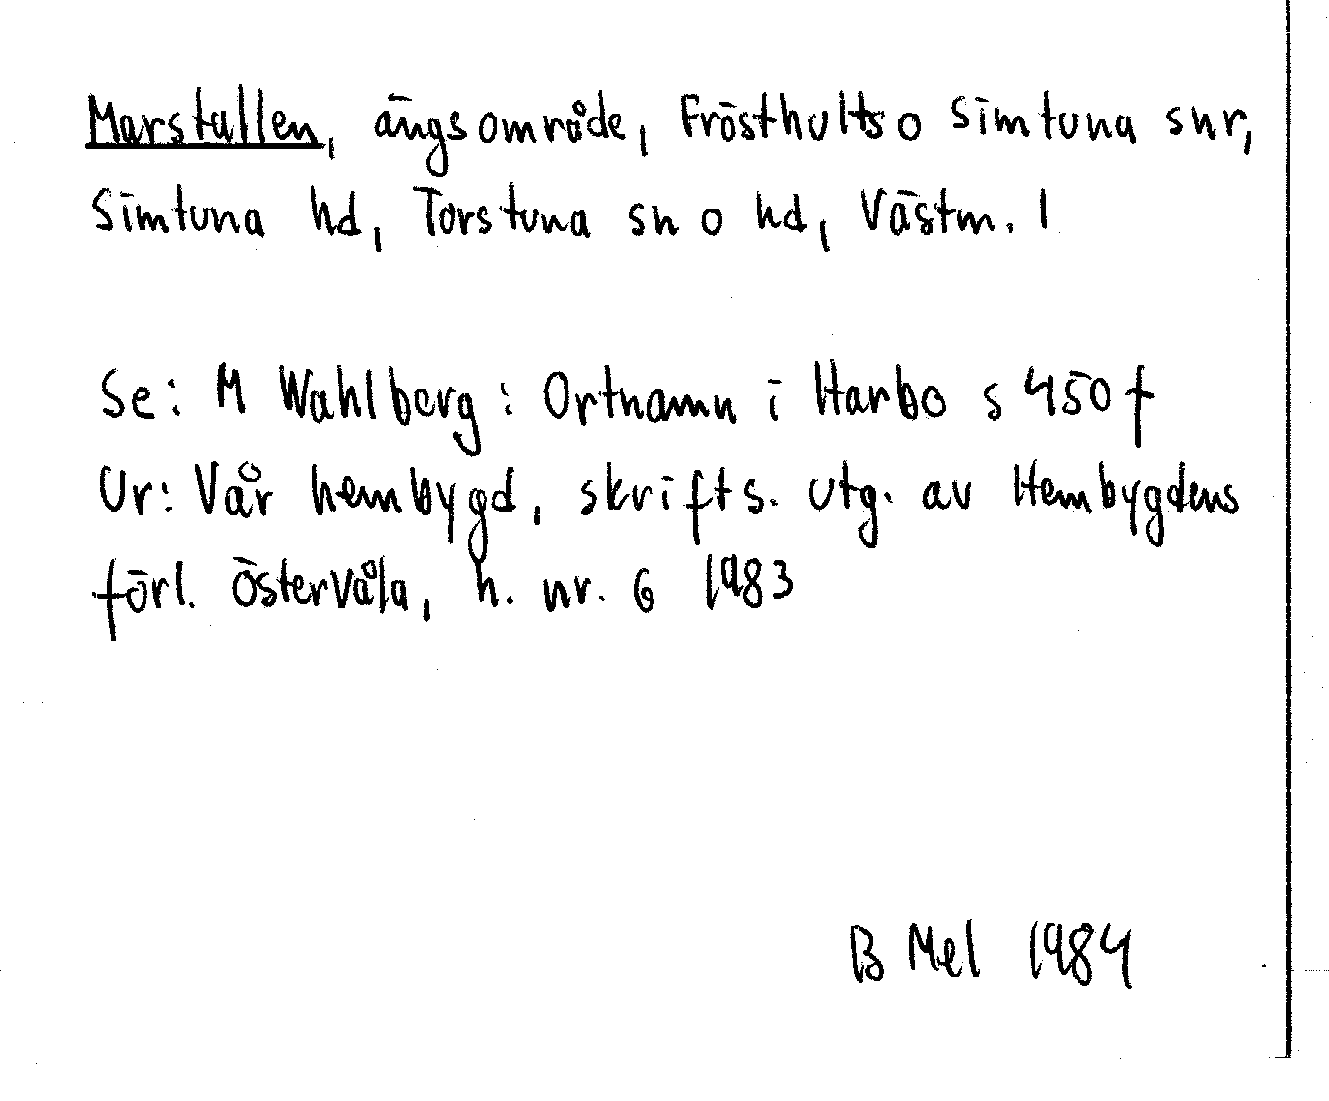 Marstallen, ängsområde, Frösthults o Simtuna snr,
Simtuna hd, Torstuna sn o hd, Västm. l
Se: M Wahlberg: Ortnamn i Harbo s 450 f
Ur: Vår hembygd, skrifts. utg. av Hembygdens
förl. Östervåla, h. nr. 6 1983
B Mel 1984